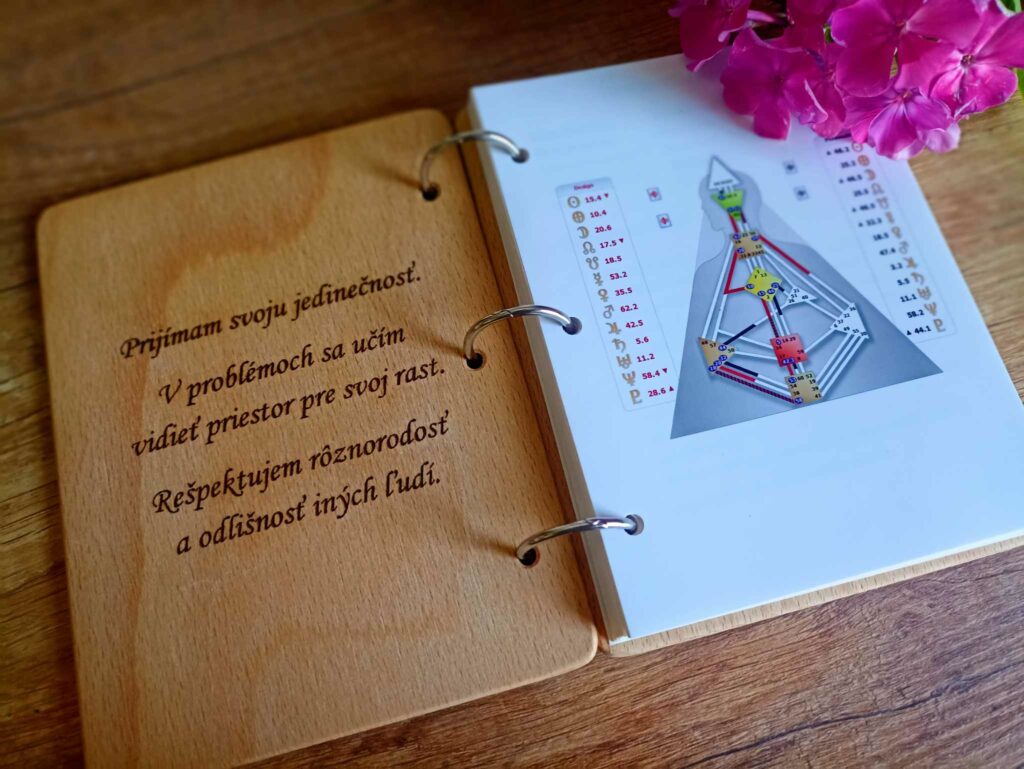 Prijímam svoju jedinečnosť.
V problémoch sa učím
vidieť priestor pre svoj rast.
Rešpektujem rôznorodosť
a odlišnosť iných ľudí.
Design
15.4 ▼
10.4
20.6
17.5 ▼
18.5
53.2
35.5
62.2
42.5
5.6
11.2
58.4 ▼
28.6 ▲
▲ 46.2
25.2
▲ 46.5
25.5
▲ 48.5
18.5
47.4
3.2
5.5
11.1
58.2
▲ 44.1